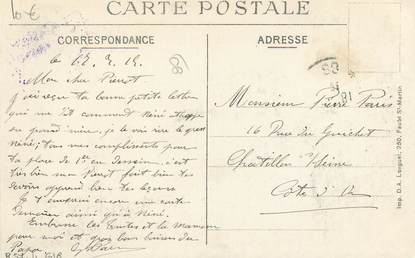 10€
CARTE POSTALE
CORRESPONDANCE
ADRESSE
le
Mon cher Pierrot
J'ai reçu ta bonne petite lettre
qui me dit comment Néné attrape
sa grand'mère, je la vois rire le gros
Néné; tous mes compliments pour
la place de 1er en Dessin. c'est
très bien mon Pierrot fait bien tes
devoirs apprend bien tes leçons
Je t'envoie encore une carte
ainsi qu'à Néné.
Embrasse les tantes et la maman
pour moi et gros bons baisers du
Papa
Monsieur Pierre Paris
16 Rue du Guichet
Chatillon s/Seine
Côte d'Or
Imp. D.A. Longuet, 250, Faubg St-Martin